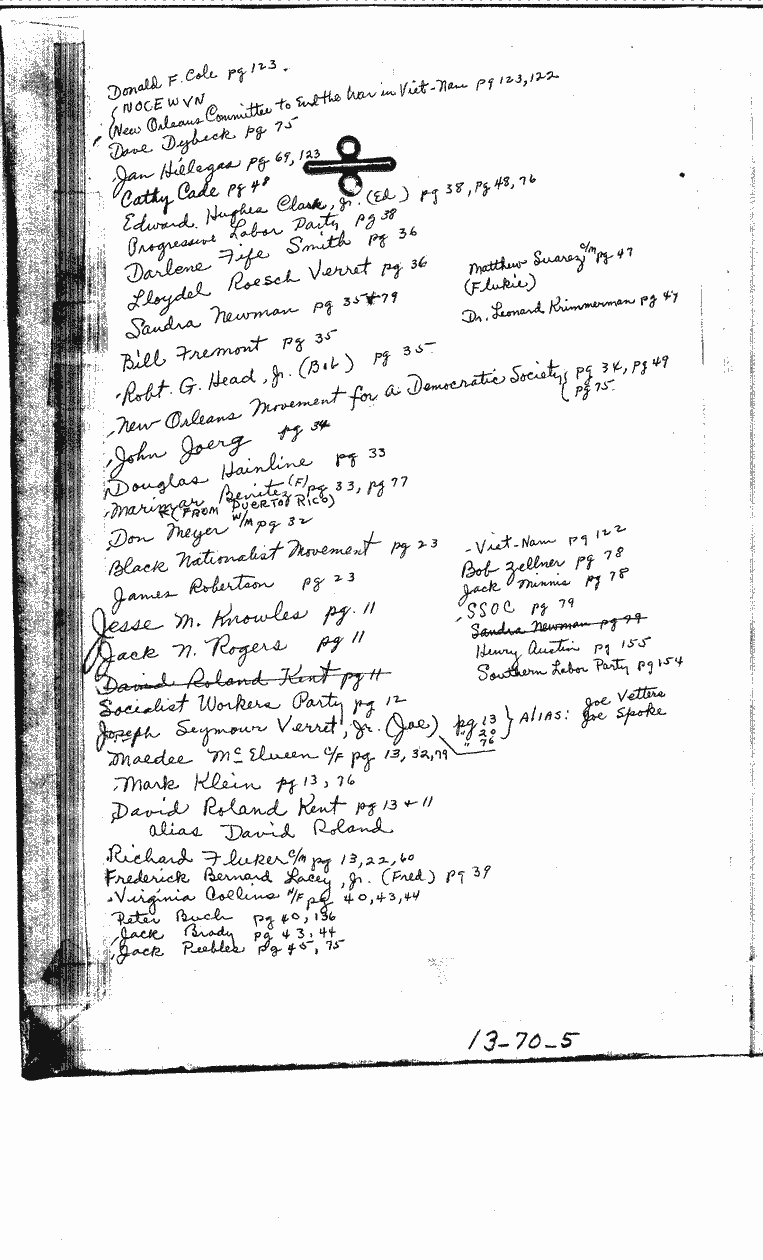 Donald F. Cole pg 123.
NOCEWVN
(New Orleans Committee to End the War in Viet-Nam pg 123, 122
Dave Dybeck pg 75
Jan Hillegas pg 69, 123
Cathy Cade pg 48
Edward Hughes Clark, Jr. (Ed) pg 38, pg 48, 76
Progressive Labor Party pg 38
Darlene Fife Smith pg 36
Lloydel Roesch Verret pg 36
Matthew Suarez c/m pg 47
(Flukie)
Sandra Newman pg 35 + 79
Dr. Leonard Krimmerman pg 47
Bill Fremont pg 35
Robt. G. Head, Jr. (Bob) pg 35
New Orleans Movement for a Democratic Society pg 34, pg 49
pg 75
John Joerg pg 34
Douglas Hainline pg 33
Marimar Benitez (F) pg 33, pg 77
(FROM PUERTO RICO)
Don Meyer W/M pg 32
Black Nationalist Movement pg 23
James Robertson pg 23
Jesse M. Knowles pg. 11
Jack N. Rogers pg 11
David Roland Kent pg 11
Viet-Nam pg 122
Bob Zellner pg 78
Jack Minnis pg 78
SSOC pg 79
Sandra Newman pg 79
Henry Austin pg 155
Southern Labor Party pg 154
Socialist Workers Party pg 12
Joseph Seymour Verret, Jr. (Joe) pg 13 } ALIAS: Joe Vetters
" 20 Joe Spoke
" 76
Maedee McElveen C/F pg 13, 32, 79
Mark Klein pg 13, 76
David Roland Kent pg 13 + 11
alias David Roland
Richard Fluker C/M pg 13, 22, 60
Frederick Bernard Lacey, Jr. (Fred) pg 39
Virginia Collins N/F pg 40, 43, 44
Peter Buch pg 40, 136
Jack Brady pg 43, 44
Jack Peebles pg 45, 75
13-70-5